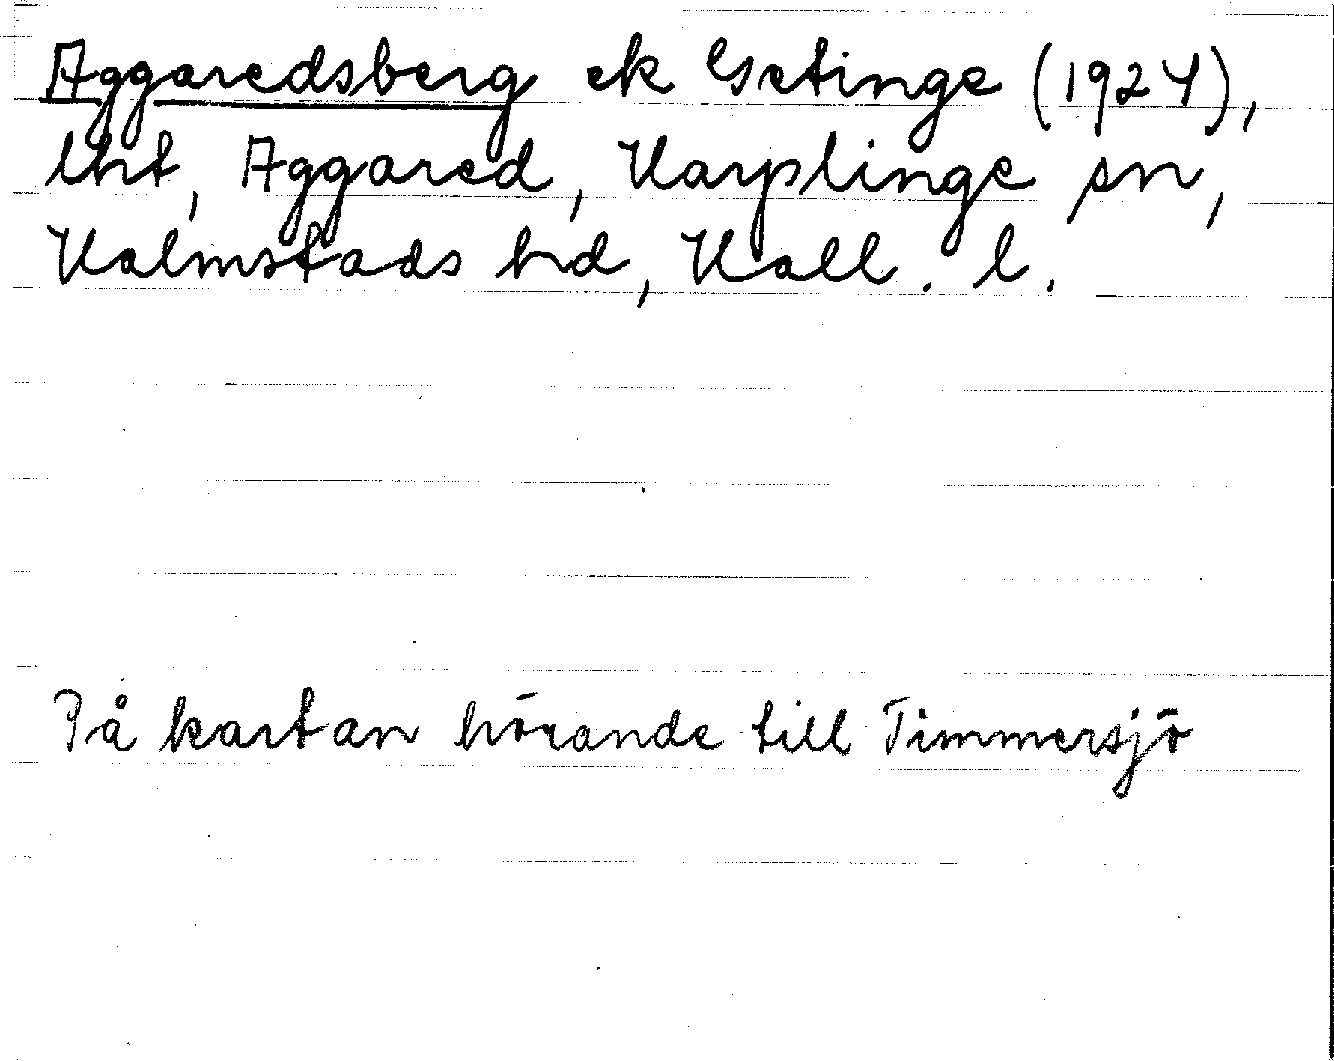 Aggaredsberg ek Getinge (1924),
lht, Aggared, Harplinge sn,
Halmstads hd, Hall. l.
På kartan hörande till Timmersjö